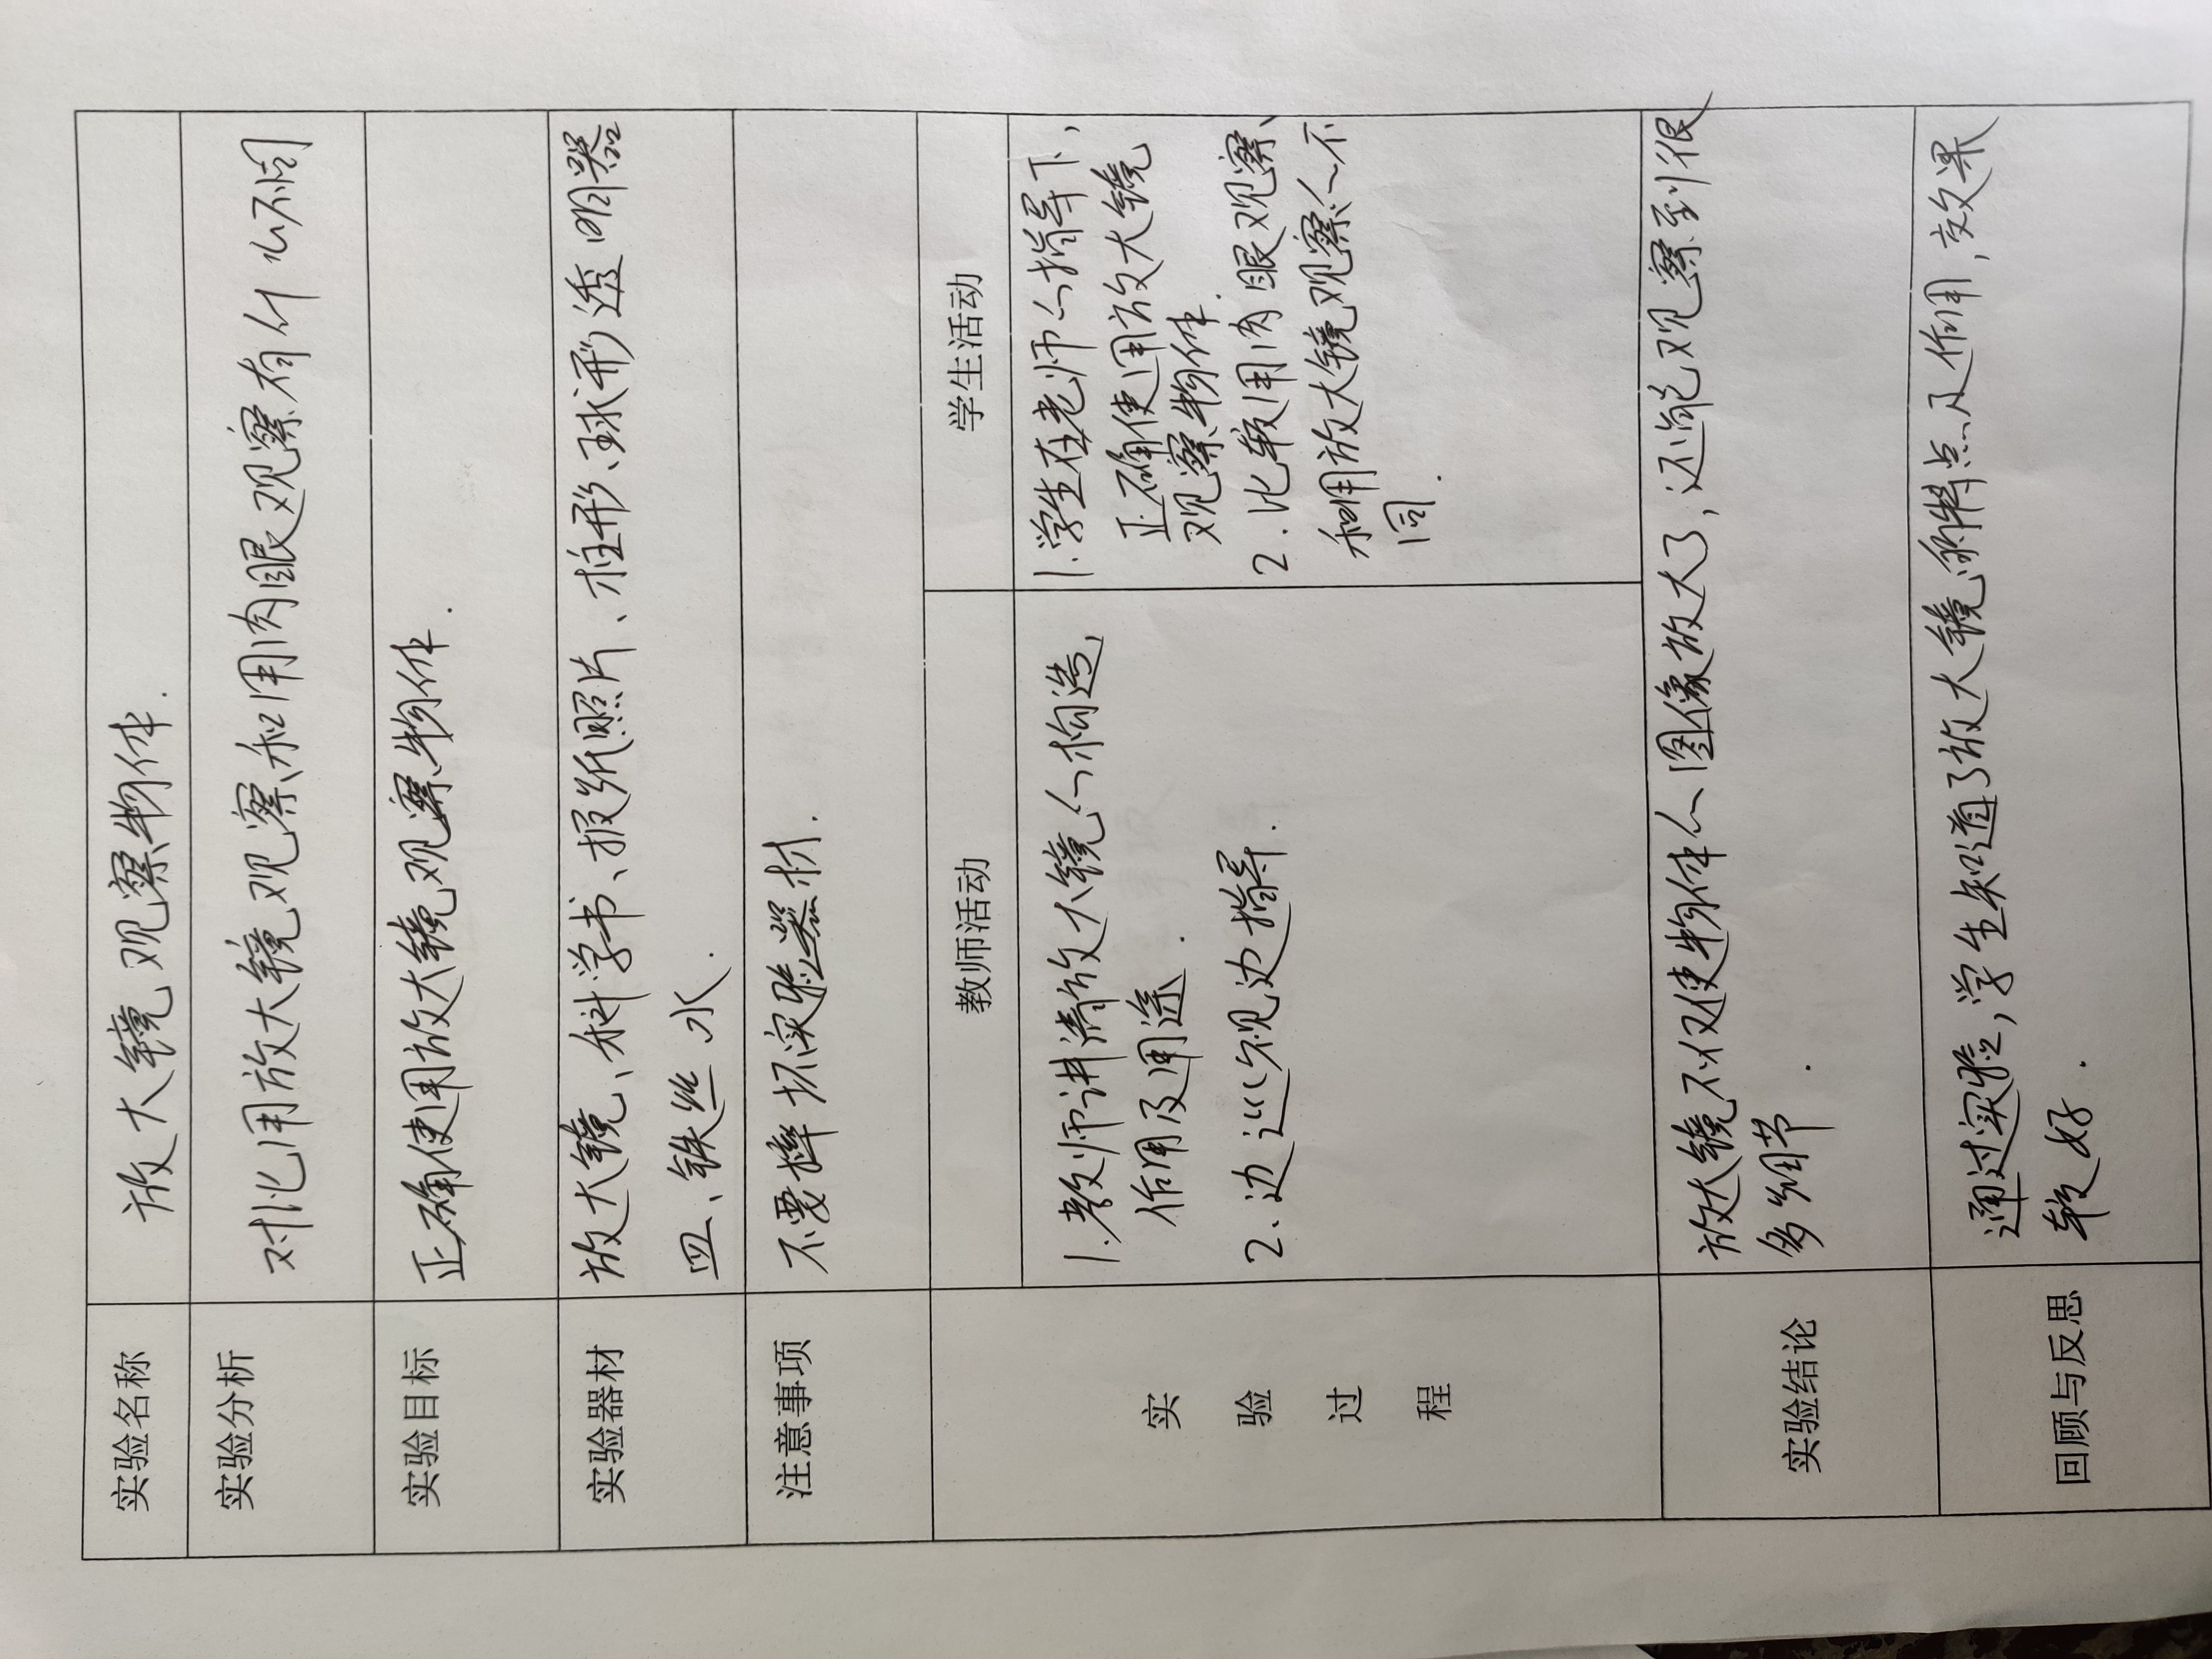 实验名称
放大镜观察物体.
实验分析
对比用放大镜观察和用肉眼观察有什么不同
实验目标
正确使用放大镜观察物体.
实验器材
放大镜、科学书、报纸照片、柱形、球形透明器
皿、铁丝、水.
注意事项
不要摔坏实验器材.
实
验
过
程
教师活动
1.教师讲清放大镜的构造,
作用及用途.
2.边巡视边指导.
学生活动
1.学生在老师的指导下,
正确使用放大镜
观察物体.
2.比较用肉眼观察、
和用放大镜观察的不
同.
实验结论
放大镜不仅使物体的图像放大了,还能观察到很
多细节.
回顾与反思
通过实验,学生知道了放大镜的特点及作用,效果
较好.